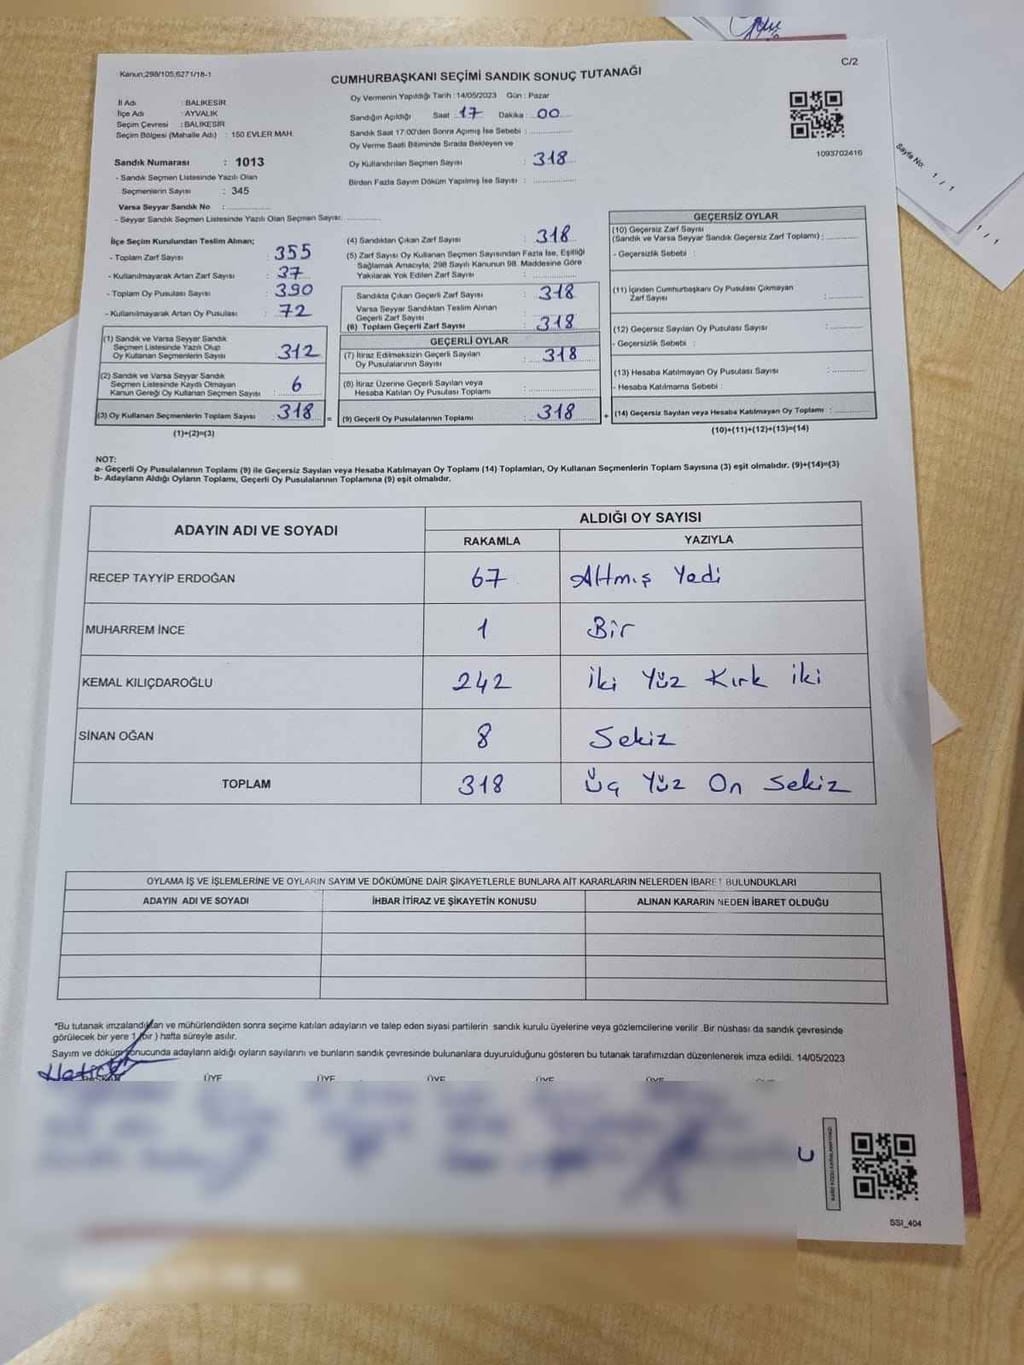 Kanun;298/105,6271/18-1
CUMHURBAŞKANI SEÇİMİ SANDIK SONUÇ TUTANAĞI
C/2
İl Adı : BALIKESİR
İlçe Adı : AYVALIK
Seçim Çevresi : BALIKESİR
Seçim Bölgesi (Mahalle Adı) : 150 EVLER MAH.
Sandık Numarası : 1013
- Sandık Seçmen Listesinde Yazılı Olan
Seçmenlerin Sayısı : 345
Varsa Seyyar Sandık No :
- Seyyar Sandık Seçmen Listesinde Yazılı Olan Seçmen Sayısı:
Oy Vermenin Yapıldığı Tarih : 14/05/2023 Gün : Pazar
Sandığın Açıldığı Saat 17 Dakika 00
Sandık Saat 17:00'den Sonra Açımış İse Sebebi :
Oy Verme Saati Bitiminde Sırada Bekleyen ve
Oy Kullandırılan Seçmen Sayısı : 318
Birden Fazla Sayım Döküm Yapılmış İse Sayısı :
1093702416
Sayfa No: 1 / 1
1 / 1
İlçe Seçim Kurulundan Teslim Alınan;
- Toplam Zarf Sayısı : 355
- Kullanılmayarak Artan Zarf Sayısı : 37
- Toplam Oy Pusulası Sayısı : 390
- Kullanılmayarak Artan Oy Pusulası : 72
(1) Sandık ve Varsa Seyyar Sandık
Seçmen Listesinde Yazılı Olup
Oy Kullanan Seçmenlerin Sayısı : 312
(2) Sandık ve Varsa Seyyar Sandık
Seçmen Listesinde Kaydı Olmayan
Kanun Gereği Oy Kullanan Seçmen Sayısı : 6
(3) Oy Kullanan Seçmenlerin Toplam Sayısı : 318 =
(1)+(2)=(3)
(4) Sandıktan Çıkan Zarf Sayısı : 318
(5) Zarf Sayısı Oy Kullanan Seçmen Sayısından Fazla İse, Eşitliği
Sağlamak Amacıyla; 298 Sayılı Kanunun 98. Maddesine Göre
Yakılarak Yok Edilen Zarf Sayısı :
Sandıkta Çıkan Geçerli Zarf Sayısı : 318
Varsa Seyyar Sandıktan Teslim Alınan
Geçerli Zarf Sayısı :
(6) Toplam Geçerli Zarf Sayısı : 318
GEÇERLİ OYLAR
(7) İtiraz Edilmeksizin Geçerli Sayılan
Oy Pusulasının Sayısı : 318
(8) İtiraz Üzerine Geçerli Sayılan veya
Hesaba Katılan Oy Pusulası Toplamı :
(9) Geçerli Oy Pusulalarının Toplamı : 318 +
GEÇERSİZ OYLAR
(10) Geçersiz Zarf Sayısı
(Sandık ve Varsa Seyyar Sandık Geçersiz Zarf Toplamı) :
- Geçersizlik Sebebi :
(11) İçinden Cumhurbaşkanı Oy Pusulası Çıkmayan
Zarf Sayısı :
(12) Geçersiz Sayılan Oy Pusulası Sayısı :
- Geçersizlik Sebebi :
(13) Hesaba Katılmayan Oy Pusulası Sayısı :
- Hesaba Katılmama Sebebi :
(14) Geçersiz Sayılan veya Hesaba Katılmayan Oy Toplamı :
(10)+(11)+(12)+(13)=(14)
NOT:
a- Geçerli Oy Pusulalarının Toplamı (9) ile Geçersiz Sayılan veya Hesaba Katılmayan Oy Toplamı (14) Toplamları, Oy Kullanan Seçmenlerin Toplam Sayısına (3) eşit olmalıdır. (9)+(14)=(3)
b- Adayların Aldığı Oyların Toplamı, Geçerli Oy Pusulalarının Toplamına (9) eşit olmalıdır.
ADAYIN ADI VE SOYADI
ALDIĞI OY SAYISI
RAKAMLA YAZIYLA
RECEP TAYYİP ERDOĞAN 67 Altmış Yedi
MUHARREM İNCE 1 Bir
KEMAL KILIÇDAROĞLU 242 İki Yüz Kırk iki
SİNAN OĞAN 8 Sekiz
TOPLAM 318 Üç Yüz On Sekiz
OYLAMA İŞ VE İŞLEMLERİNE VE OYLARIN SAYIM VE DÖKÜMÜNE DAİR ŞİKAYETLERLE BUNLARA AİT KARARLARIN NELERDEN İBARET BULUNDUKLARI
ADAYIN ADI VE SOYADI İHBAR İTİRAZ VE ŞİKAYETİN KONUSU ALINAN KARARIN NEDEN İBARET OLDUĞU
*Bu tutanak imzalandıktan ve mühürlendikten sonra seçime katılan adayların ve talep eden siyasi partilerin sandık kurulu üyelerine veya gözlemcilerine verilir. Bir nüshası da sandık çevresinde
görülecek bir yere 1 (bir) hafta süreyle asılır.
Sayım ve döküm sonucunda adayların aldığı oyların sayılarını ve bunların sandık çevresinde bulunanlara duyurulduğunu gösteren bu tutanak tarafımızdan düzenlenerek imza edildi. 14/05/2023
ÜYE ÜYE ÜYE ÜYE ÜYE
SSI_404